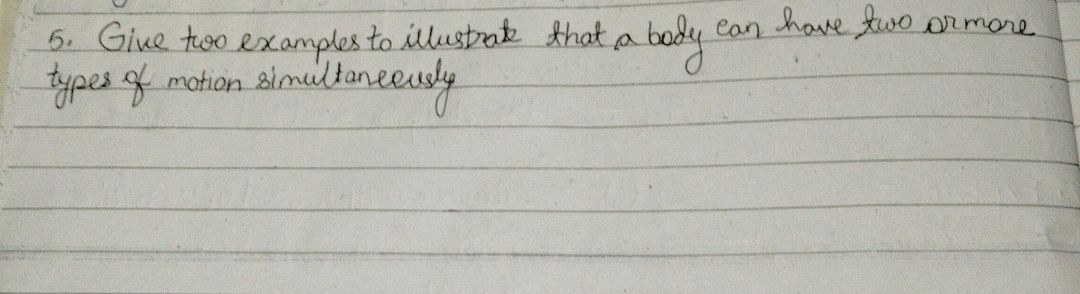 5. Give two examples to illustrate that a body can have two or more
types of motion simultaneously